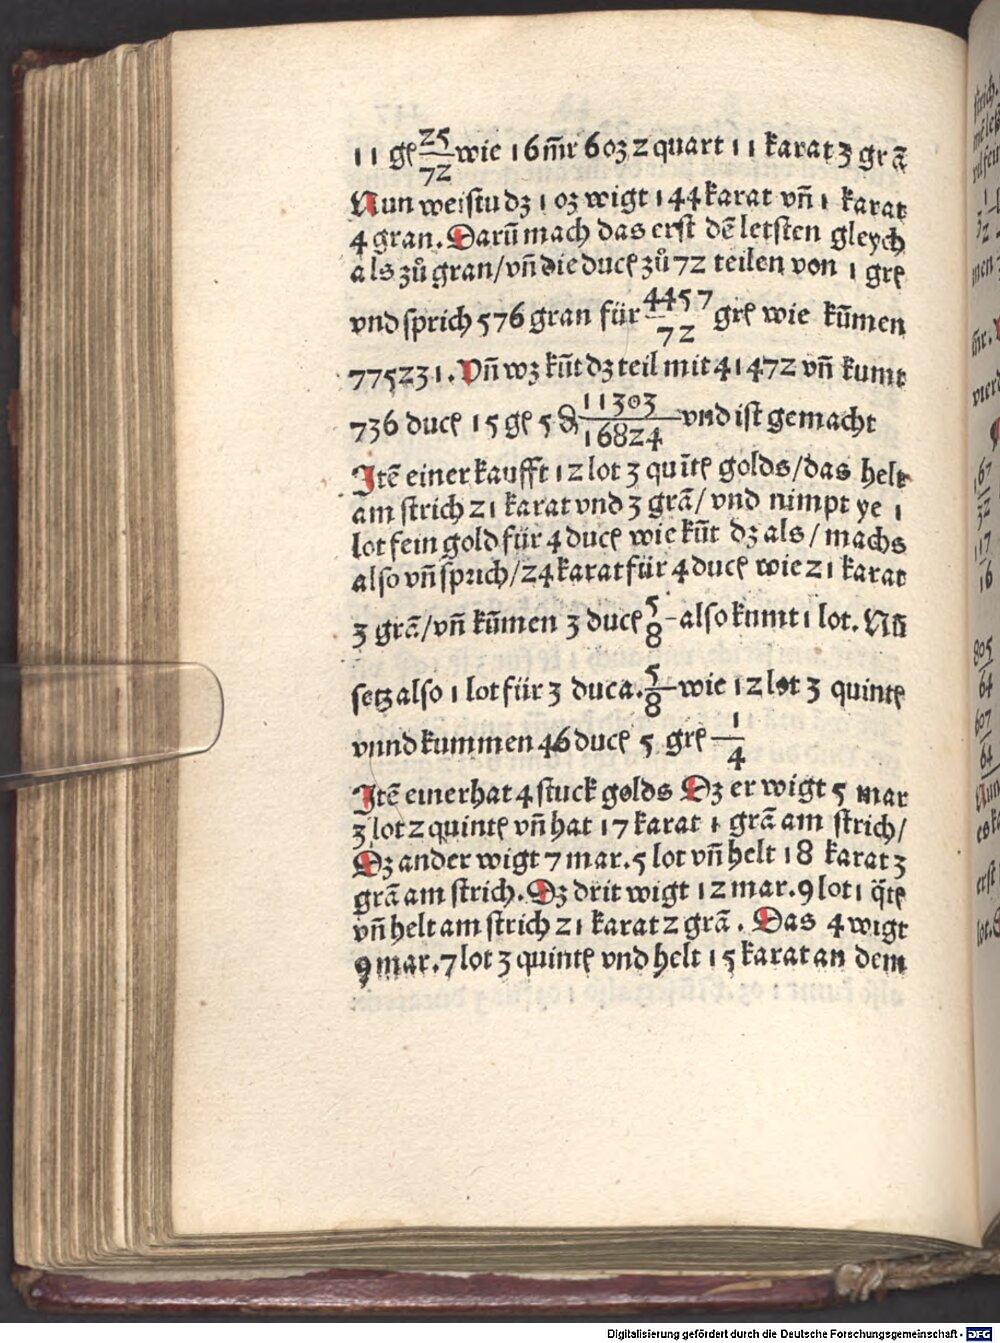 11 gꝭ 25/72 wie 16 m̄r 6 oʒ 2 quart 11 karat 3 grā
Nun weistu dʒ 1 oʒ wigt 144 karat vn̄ 1 karat
4 gran. Darū mach das erst dē letsten gleych
als zů gran/ vn̄ die ducꝭ zů 72 teilen von 1 grꝭ
vnd sprich 576 gran für 4457/72 grꝭ wie kūmen
775231. Vn̄ wʒ kūt dʒ teil mit 41472 vn̄ kumt
736 ducꝭ 15 gꝭ 5 ₰ 11303/16824 vnd ist gemacht
Itē einer kaufft 12 lot 3 quītꝭ golds/ das helt
am strich 21 karat vnd 3 grā/ vnd nimpt ye 1
lot fein gold für 4 ducꝭ wie kūt dʒ als/ machs
also vn̄ sprich/ 24 karat für 4 ducꝭ wie 21 karat
3 grā/ vn̄ kūmen 3 ducꝭ 5/8 also kumt 1 lot. Nū
setz also 1 lot für 3 duca. 5/8 wie 12 lot 3 quintꝭ
vnnd kummen 46 ducꝭ 5 grꝭ 1/4
Itē einer hat 4 stuck golds Dʒ er wigt 5 mar
3 lot 2 quintꝭ vn̄ hat 17 karat 1 grā am strich/
Dʒ ander wigt 7 mar. 5 lot vn̄ helt 18 karat 3
grā am strich. Dʒ drit wigt 12 mar. 9 lot 1 q̄tꝭ
vn̄ helt am strich 21 karat 2 grā. Das 4 wigt
9 mar. 7 lot 3 quintꝭ vnd helt 15 karat an dem
Digitalisierung gefördert durch die Deutsche Forschungsgemeinschaft - DFG